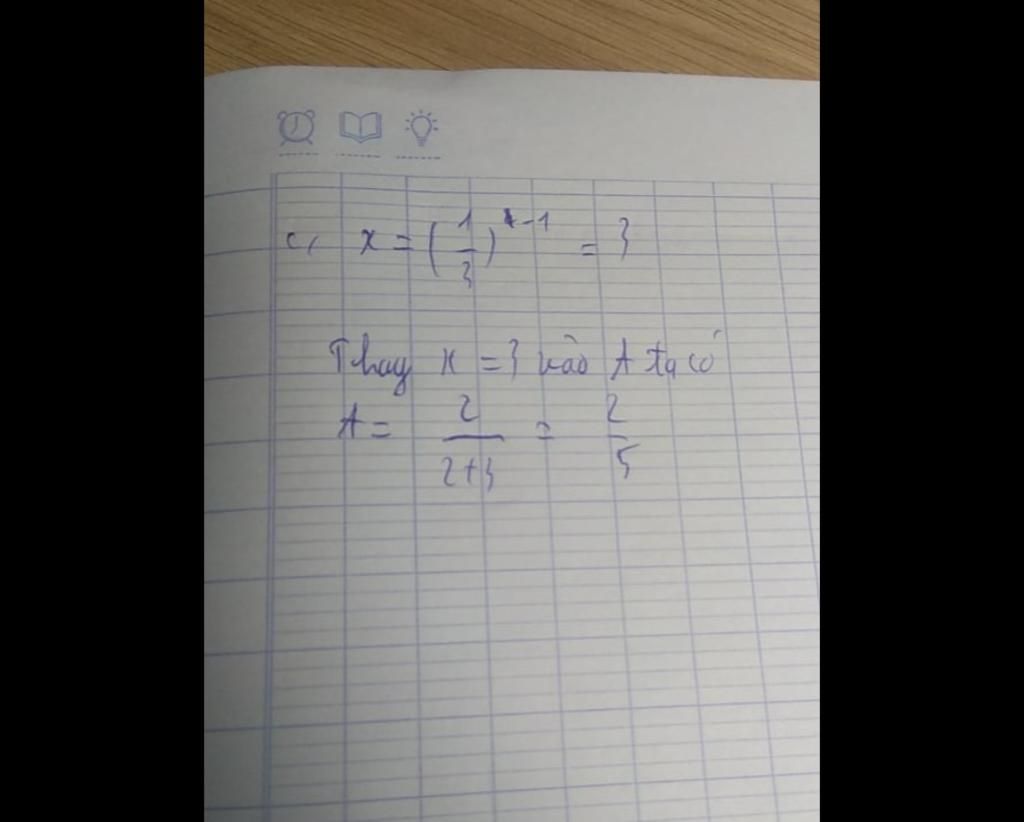 c, x = (1/3)^-1 = 3
Thay x = 3 vào A ta có
A = 2/(2+3) = 2/5